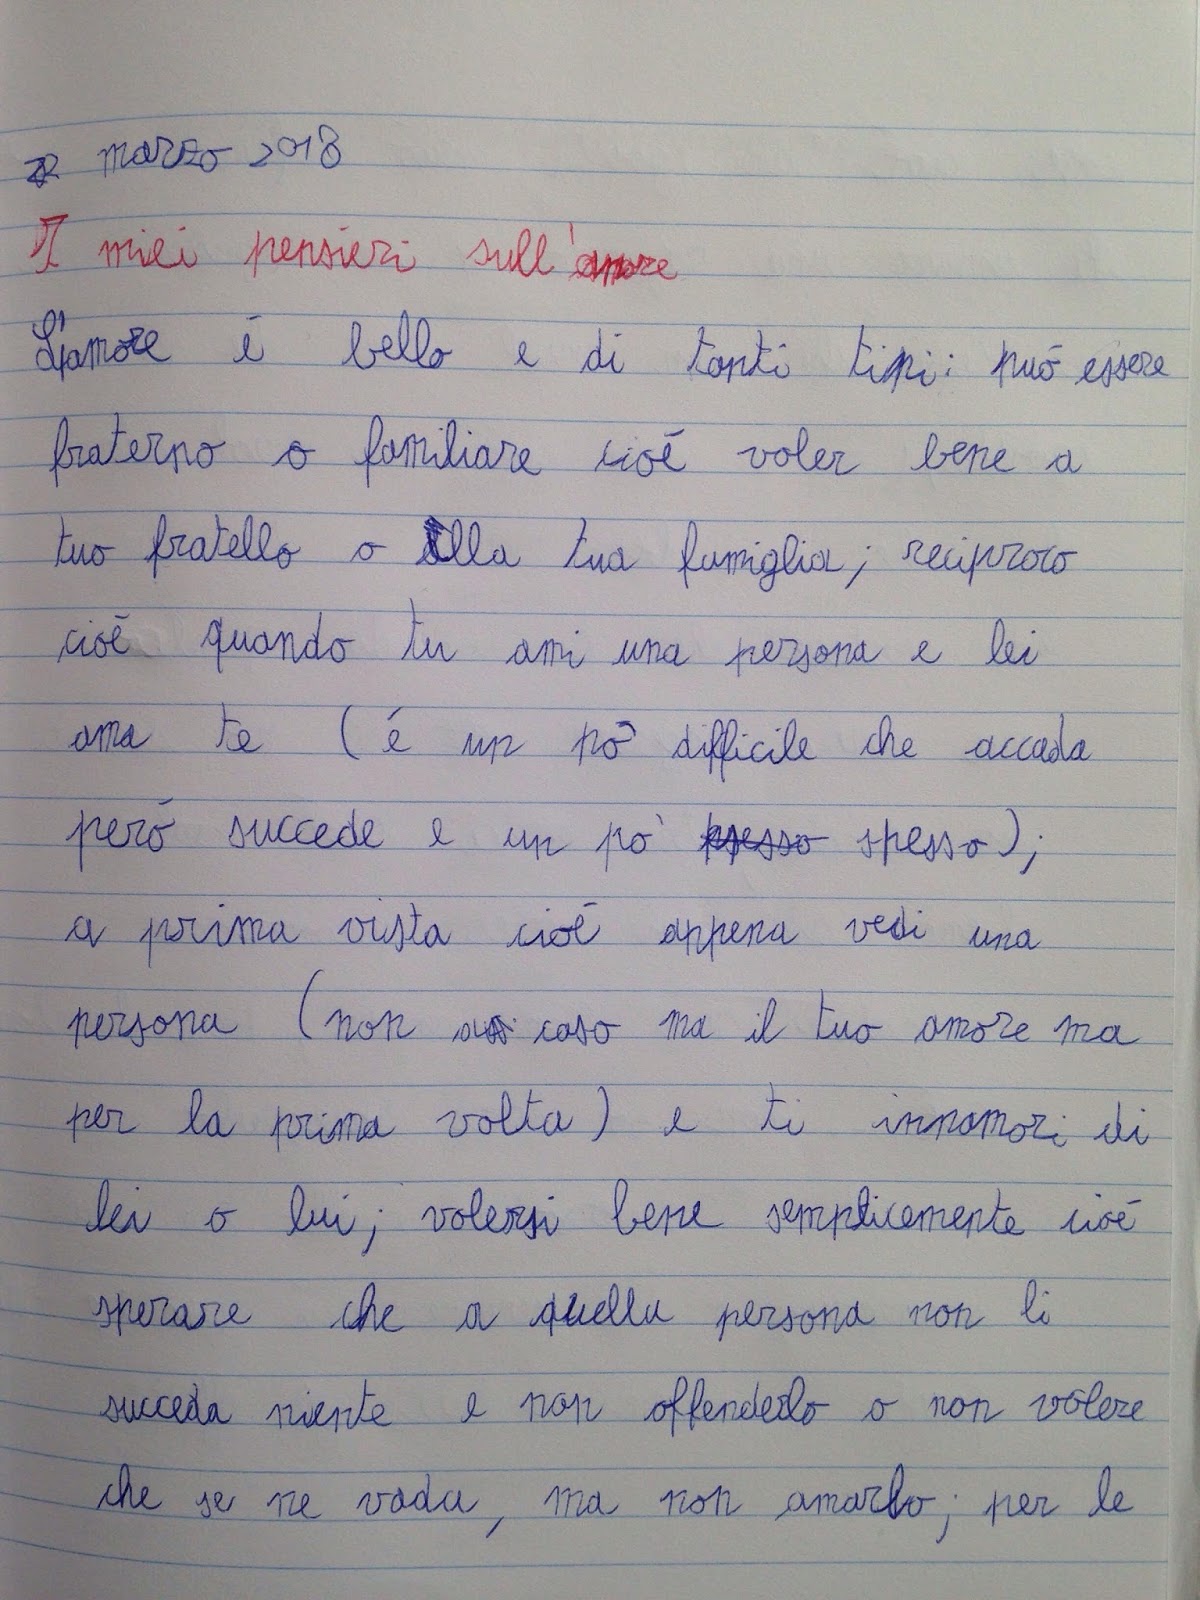 marzo 2018
I miei pensieri sull'amore
L'amore é bello e di tanti tipi: può essere
fraterno o familiare cioé voler bene a
tuo fratello o alla tua famiglia; reciproco
cioé quando tu ami una persona e lei
ama te (é un pò difficile che accada
peró succede e un pò spesso);
a prima vista cioé appena vedi una
persona (non a caso ma il tuo amore ma
per la prima volta) e ti innamori di
lei o lui; volersi bene semplicemente cioé
sperare che a quella persona non li
succeda niente e non offenderlo o non volere
che se ne vada, ma non amarlo; per le